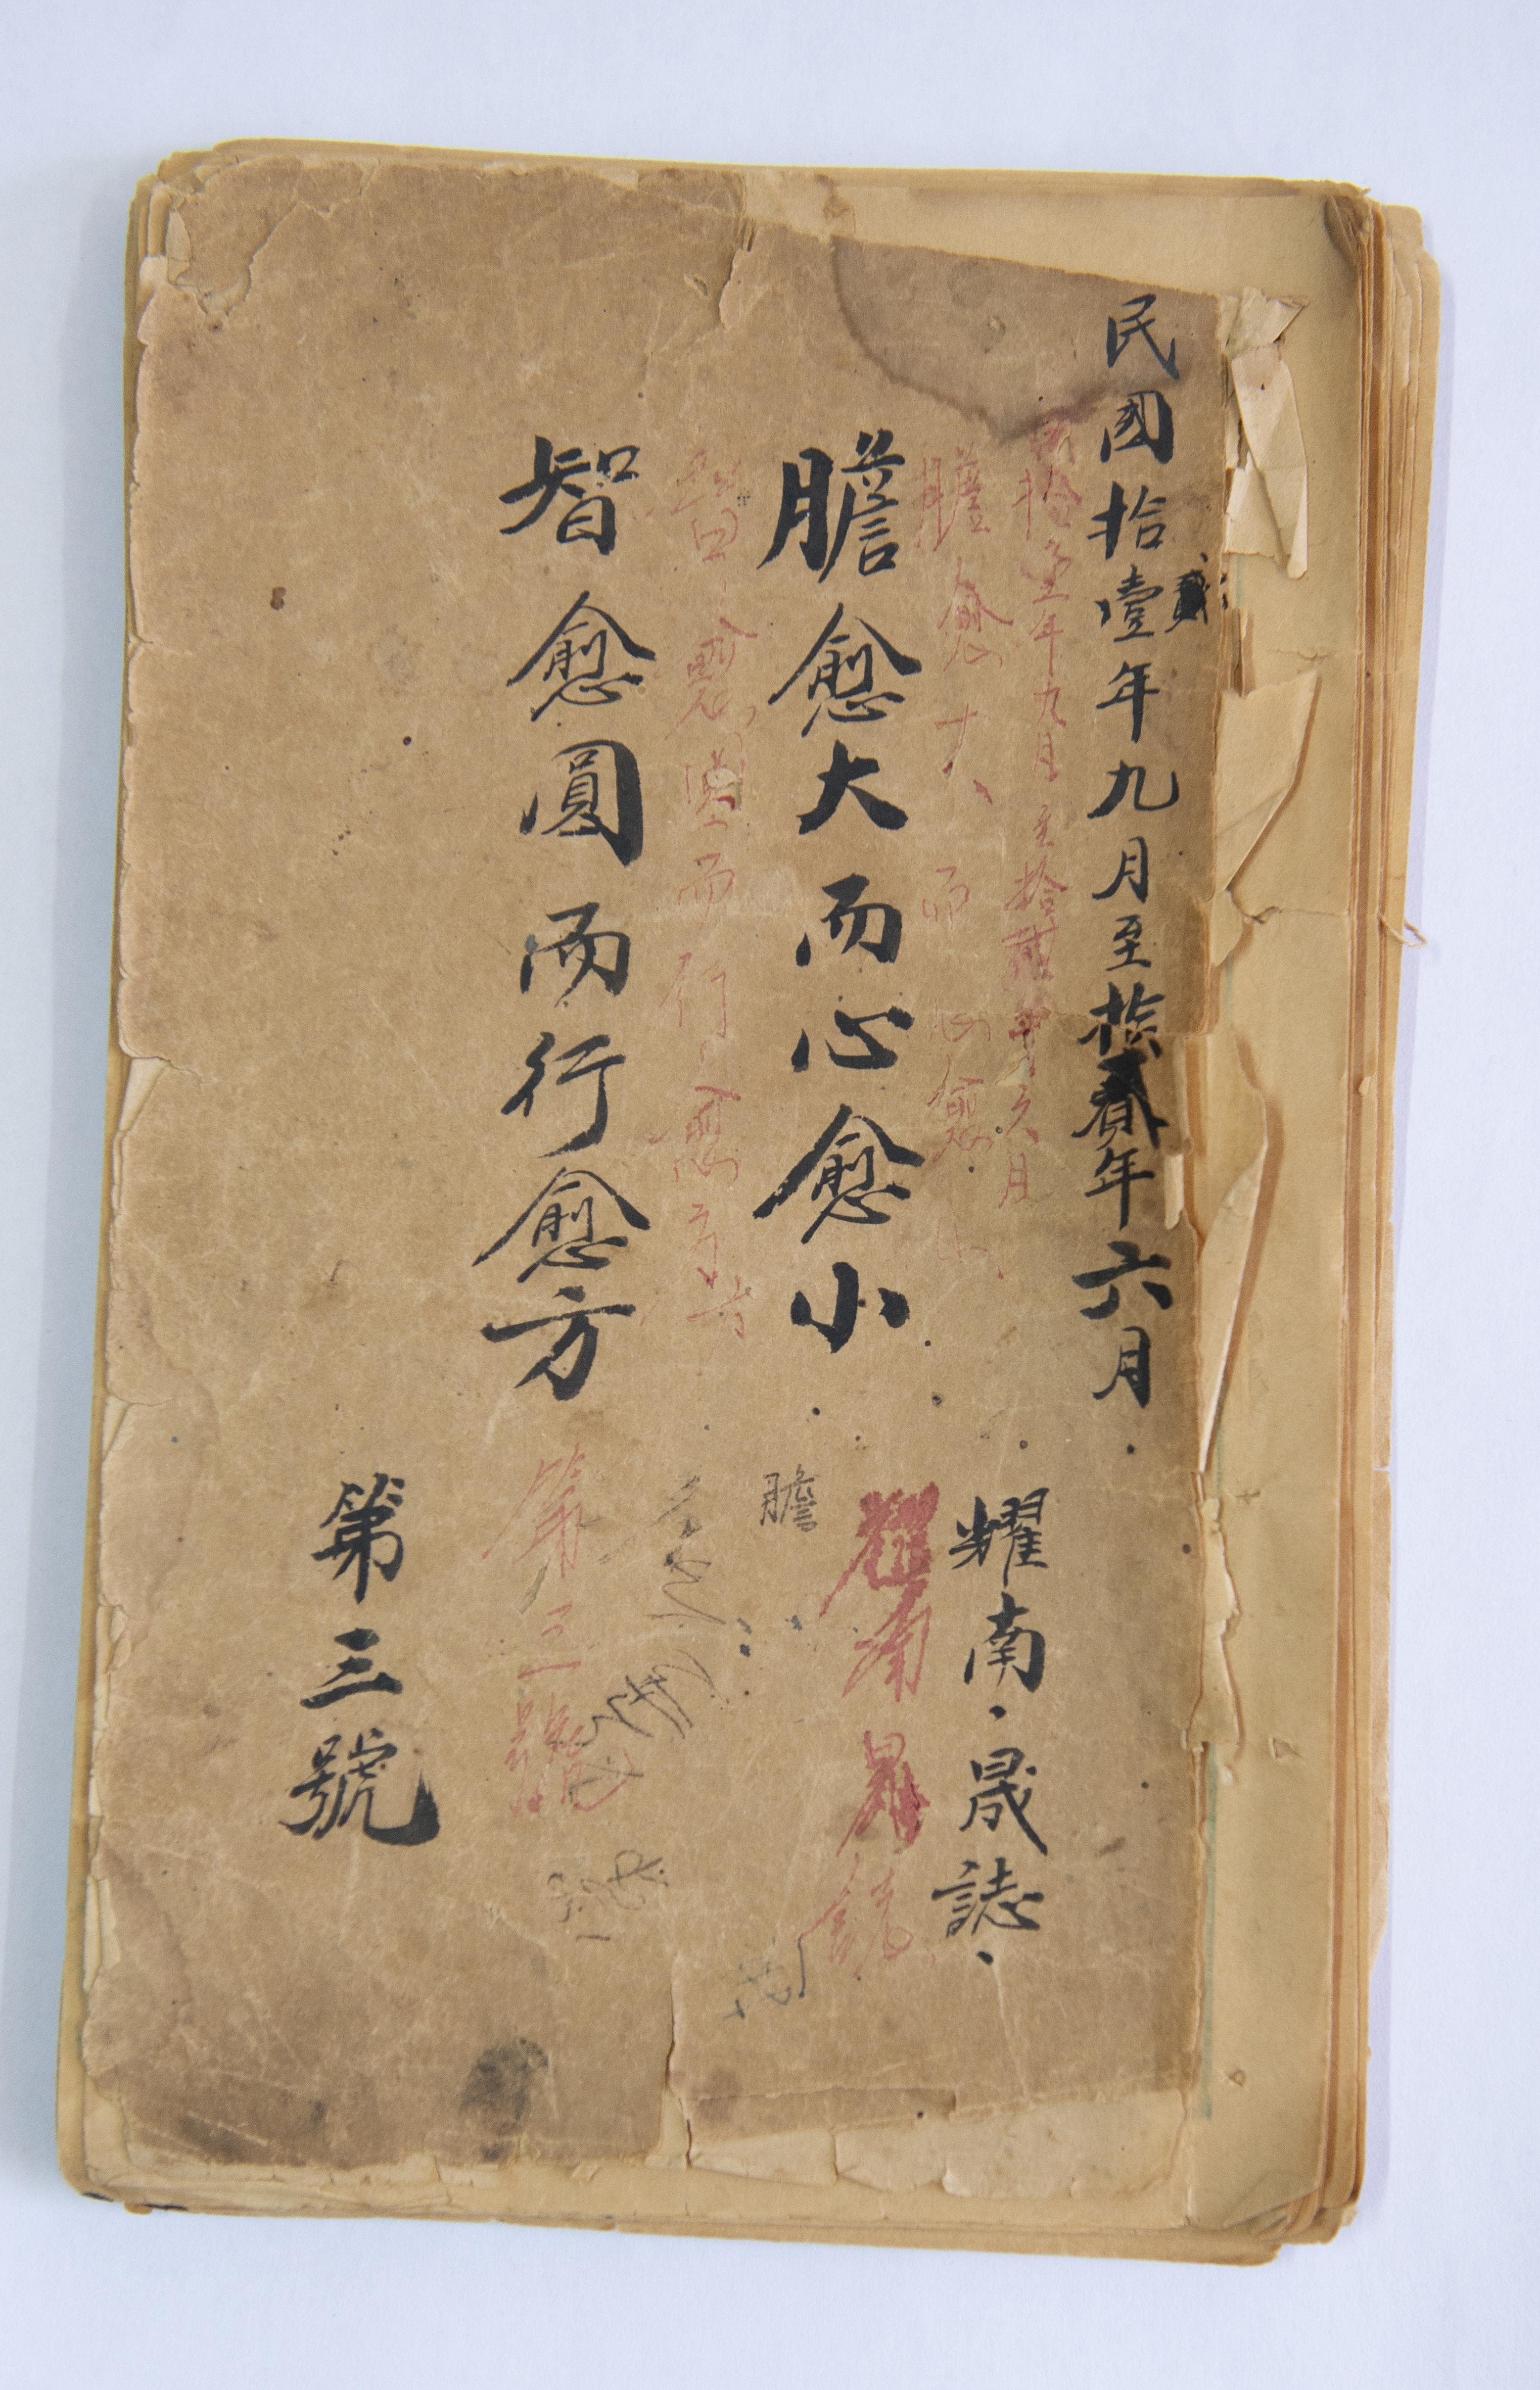 民國拾壹年九月至拾貳年六月
貳
拾壹年九月至拾貳年六月
耀南·晟誌·
膽愈大而心愈小
耀南晟誌
膽愈大而心愈小
膽
智愈圓而行愈方
智愈圓而行愈方
第三號
第三號